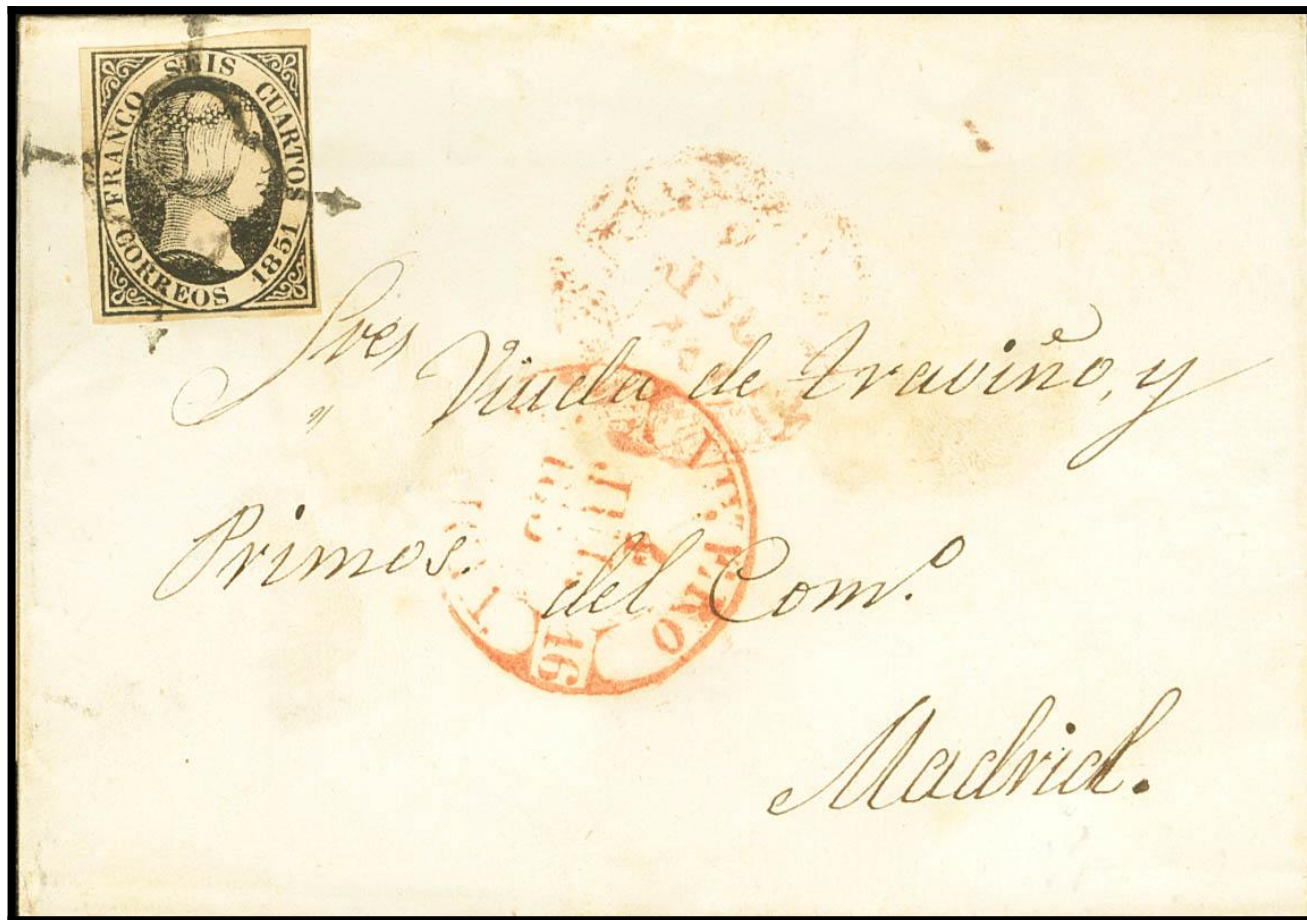 FRANCO SEIS CUARTOS
CORREOS 1851
Sres Viuda de traviño, y
Primos. del Com.º
Madrid.
JUL
1851
16